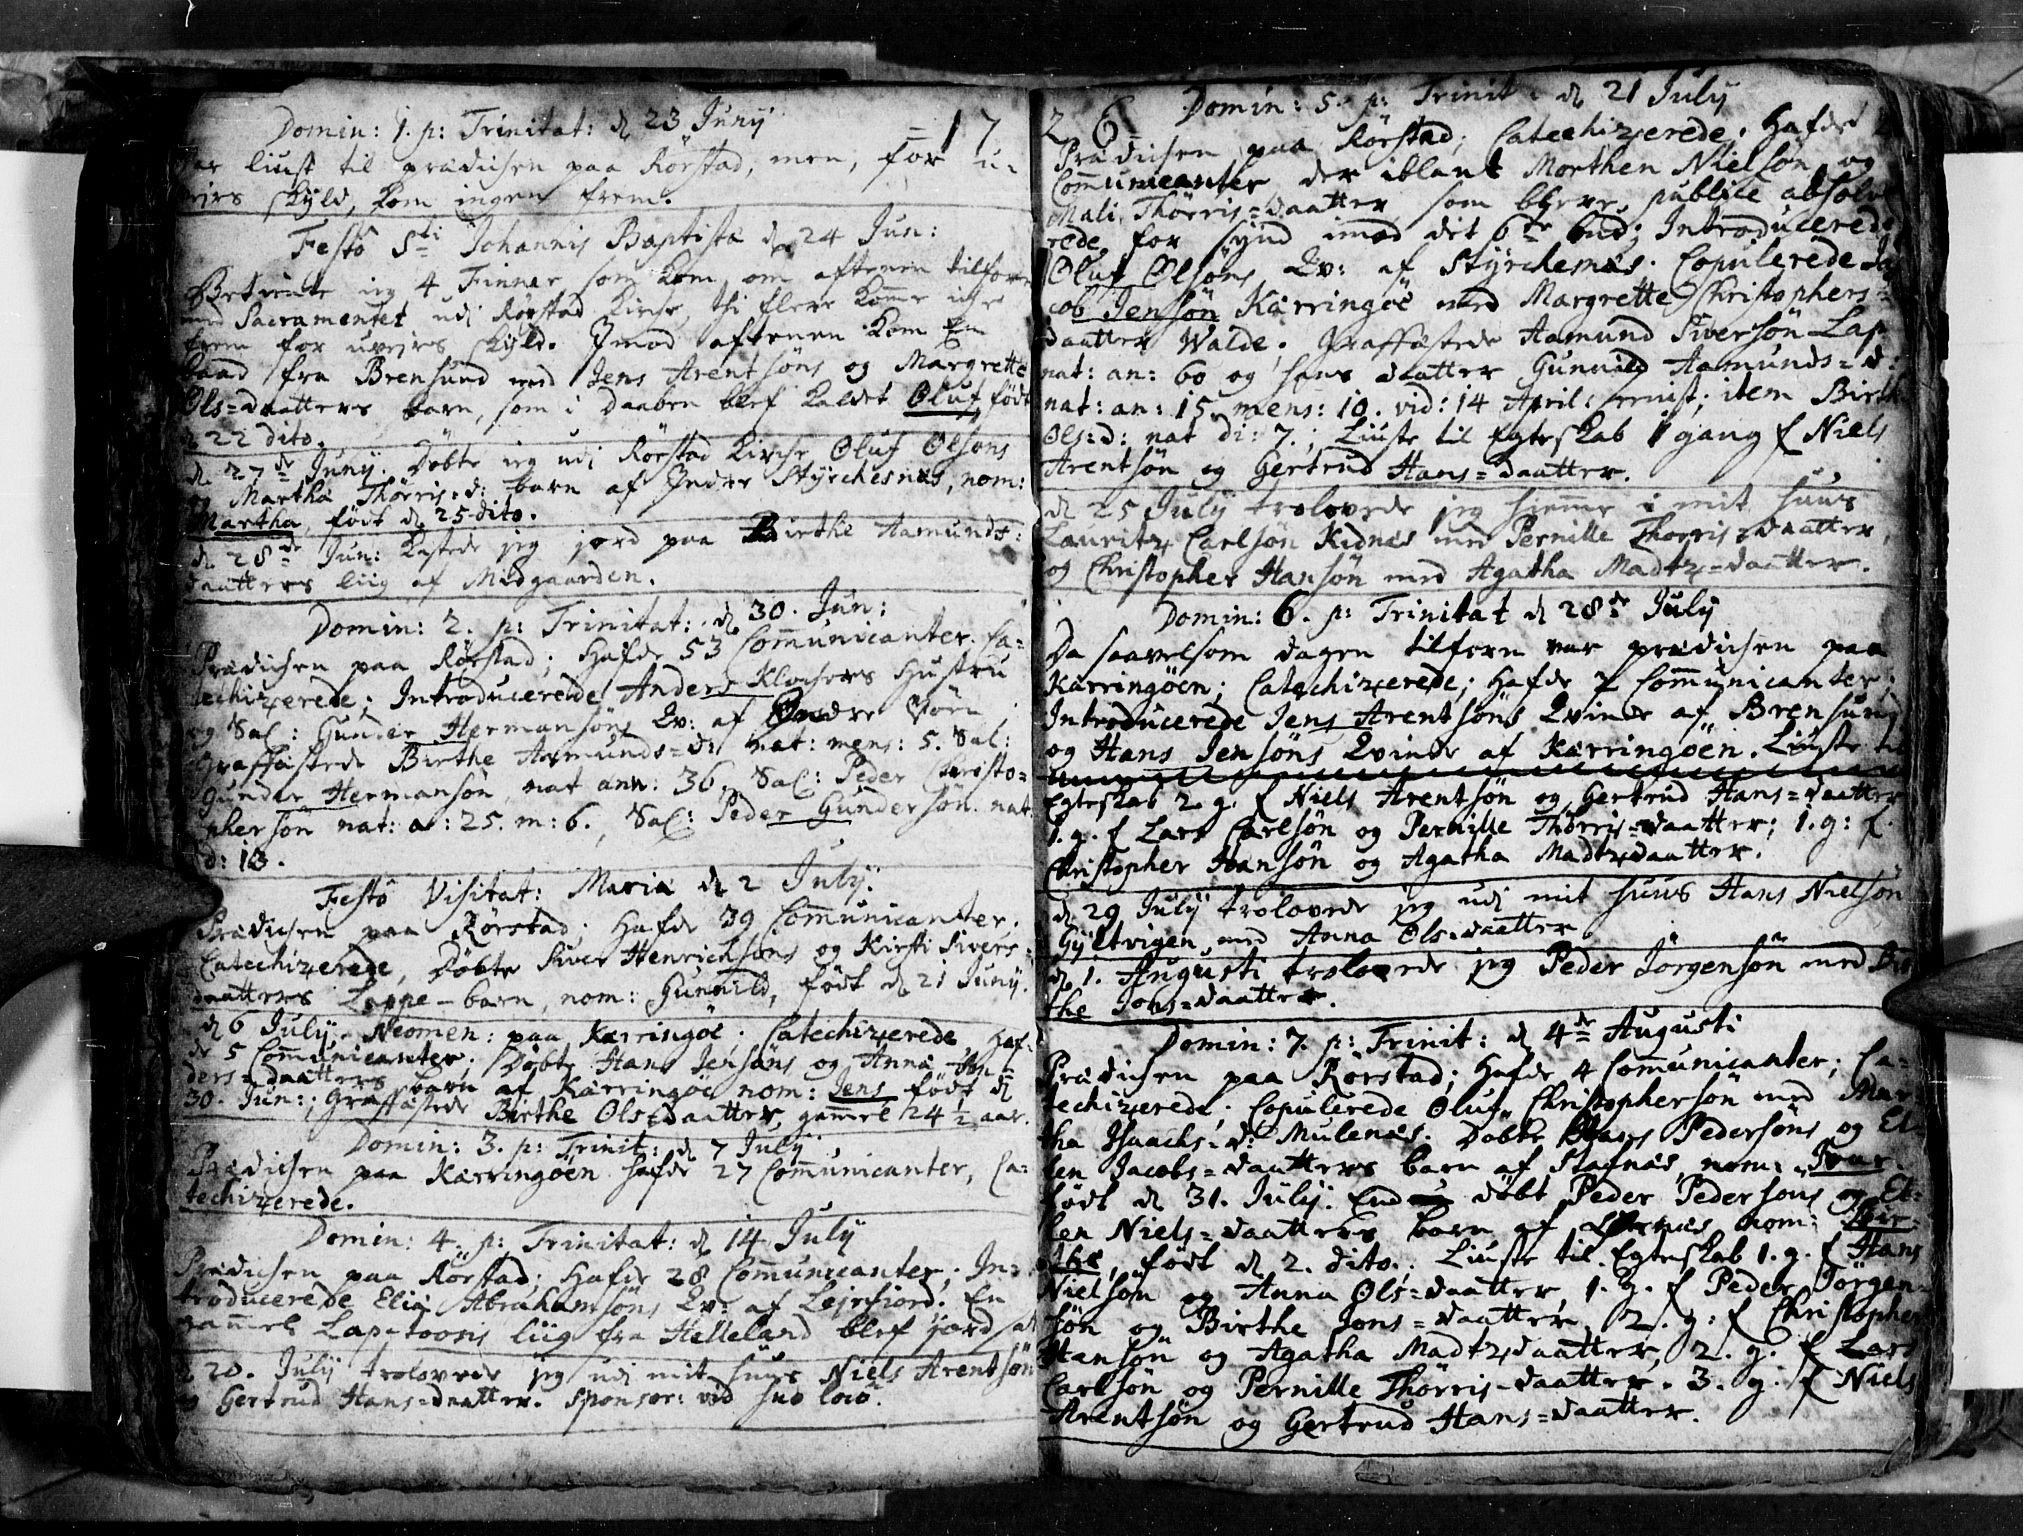 Domin: 1. p: Trinitat: d 23 Juny = 17
var liust til prædichen paa Rörstad, men, for u-
veirs skyld, kom ingen frem.
Festo Sti Johannis Baptistæ d 24 Jun:
Betiente ieg 4 Finner som kom om aftenen tilforn
med Sacramentet udj Rörstad kirche, thi flere komme iche
frem for uveirs skyld. Imod aftenen kom En
baad fra Brensund med Jens Arentsöns og Margrette
Ols=daatters barn, som i daaben blef kaldet Oluf, födt
d 22 dito.
d 27de Juny. Döbte ieg udj Rörstad kirche Oluf Olsöns
og Martha Thörris=d: barn af Indre Styrchesnæs, nom:
Martha, födt d 25 dito.
d 28de Jun: kastede jeg jord paa Birthe Aamunds=
daatters liig af Midgaarden.
Domin: 2. p: Trinitat: d 30. Jun:
Prædichen paa Rörstad; Hafde 53 Communicanter. Ca=
techizerede; Introducerede Anders Klochers Hustru
og Sal: Gunder Hermansöns Qv: af Öndre Törn
Graffæstede Birthe Aamunds=d: nat: mens: 5. Sal:
Gunder Hermansön, nat ann: 36, Sal: Peder Christo=
phersön nat: a: 25. m: 6., Sal: Peder Gundersön nat
d: 13.
Festo Visitat: Mariæ d 2 July.
Prædichen paa Rörstad; Hafde 39 Communicanter.
Catechizerede, Döbte Siver Henrichsöns og Kirsti Sivers=
daatters Lappe-barn, nom: Gunnild, födt d 21 Juny.
d 6 July. Neomen: paa Karringöe; Catechizerede, Haf=
de 5 Communicanter; Döbte Hans Jensöns og Anna
ders=daatters barn af Karringöe nom: Jens födt d
30. Jun:; Graffæstede Birthe Ols=daatter, gammel 24 ½ aar.
Domin: 3. p: Trinit: d 7 July
Prædichen paa Karringöen hafde 27 Communicanter, Ca=
techizerede.
Domin: 4. p: Trinitat: d 14 July
Prædichen paa Rörstad; Hafde 28 Communicanter; In=
troducerede Eliæ Abrahamsöns Qv: af Lejrfiord; En
gammel Lap=toosis liig fra Helleland blef jord
d 20. July trolovede jeg udj mit huus Niels Arentsön
og Gertrud Hans=daatter. Sponsor: vid suo loco.
2 6 Domin: 5. p: Trinit: d 21 July
Prædichen paa Rörstad; Catechizerede; Hafde
Communicanter, der iblant Morthen Nielsön og
Mali Thörris=daatter som bleve publice absolve
rede for synd imod det 6te bud; Introducerede
Oluf Olsöns Qv: af Styrchenæs. Copulerede Ja
cob Jensön Karringöe med Margrette Christophers=
daatter Walde. Graffæstede Aamund Siversön Lap
nat: an: 60 og hans daatter Gunnild Aamunds=d:
nat: an: 15. mens: 10. vid: 14 April: item Birth
Ols:d: nat di: 7.; Liuste til Egteskab 1 gang f Niels
Arentsön og Gertrud Hans=daatter.
d 25 July trolovede jeg hiemme i mit huus
Lauritz Carlsön Kidnæs med Pernille Thorris=daatter,
og Christopher Hansön med Agatha Madtz=daatter.
Domin: 6. p: Trinitat d 28de July
Da saavelsom dagen tilforn var prædichen paa
Karringöen; Catechizerede; Hafde 7 Communicanter;
Introducerede Jens Arentsöns Qvinde af Brensund
og Hans Jensöns Qvinde af Karringöen. Liuste til
Egteskab 2. g. f Niels Arentsön og Gertrud Hans=daatter
1. g. f Lars Carlsön og Pernille Thörris=daatter; 1. g: f.
Christopher Hansön og Agatha Madtzdaatter.
d 29 July trolovede jeg udj mit huus Hans Nielsön
Gyltvigen med Anna Ols=daatter
d 1. Augusti trolovede jeg Peder Jörgensön med Bir
the Jons=daatter.
Domin: 7. p: Trinit: d 4de Augusti
Prædichen paa Rörstad; Hafde 4 Communicanter; Ca=
techizerede; Copulerede Oluf Christophersön med Mar=
tha Isaachs:d: Mulenæs. Döbte Hans Pedersöns og El=
len Jacobs=daatters barn af Stafnæs, nom: Ivar.
födt d 31. July. End döbt Peder Pedersöns og El=
len Niels=daatters barn af nom: Bir
the, födt d 2. dito. Liuste til Egteskab 1. g. f Hans
Nielsön og Anna Ols=daatter, 1. g. f Peder Jörgen=
sön og Birthe Jons=daatter, 2. g: f Christopher
Hansön og Agatha Madtzdaatter, 2. g. f Lars
Carlsön og Pernille Thörris-daatter. 3. g. f Niels
Arentsön og Gertrud Hans=daatter.